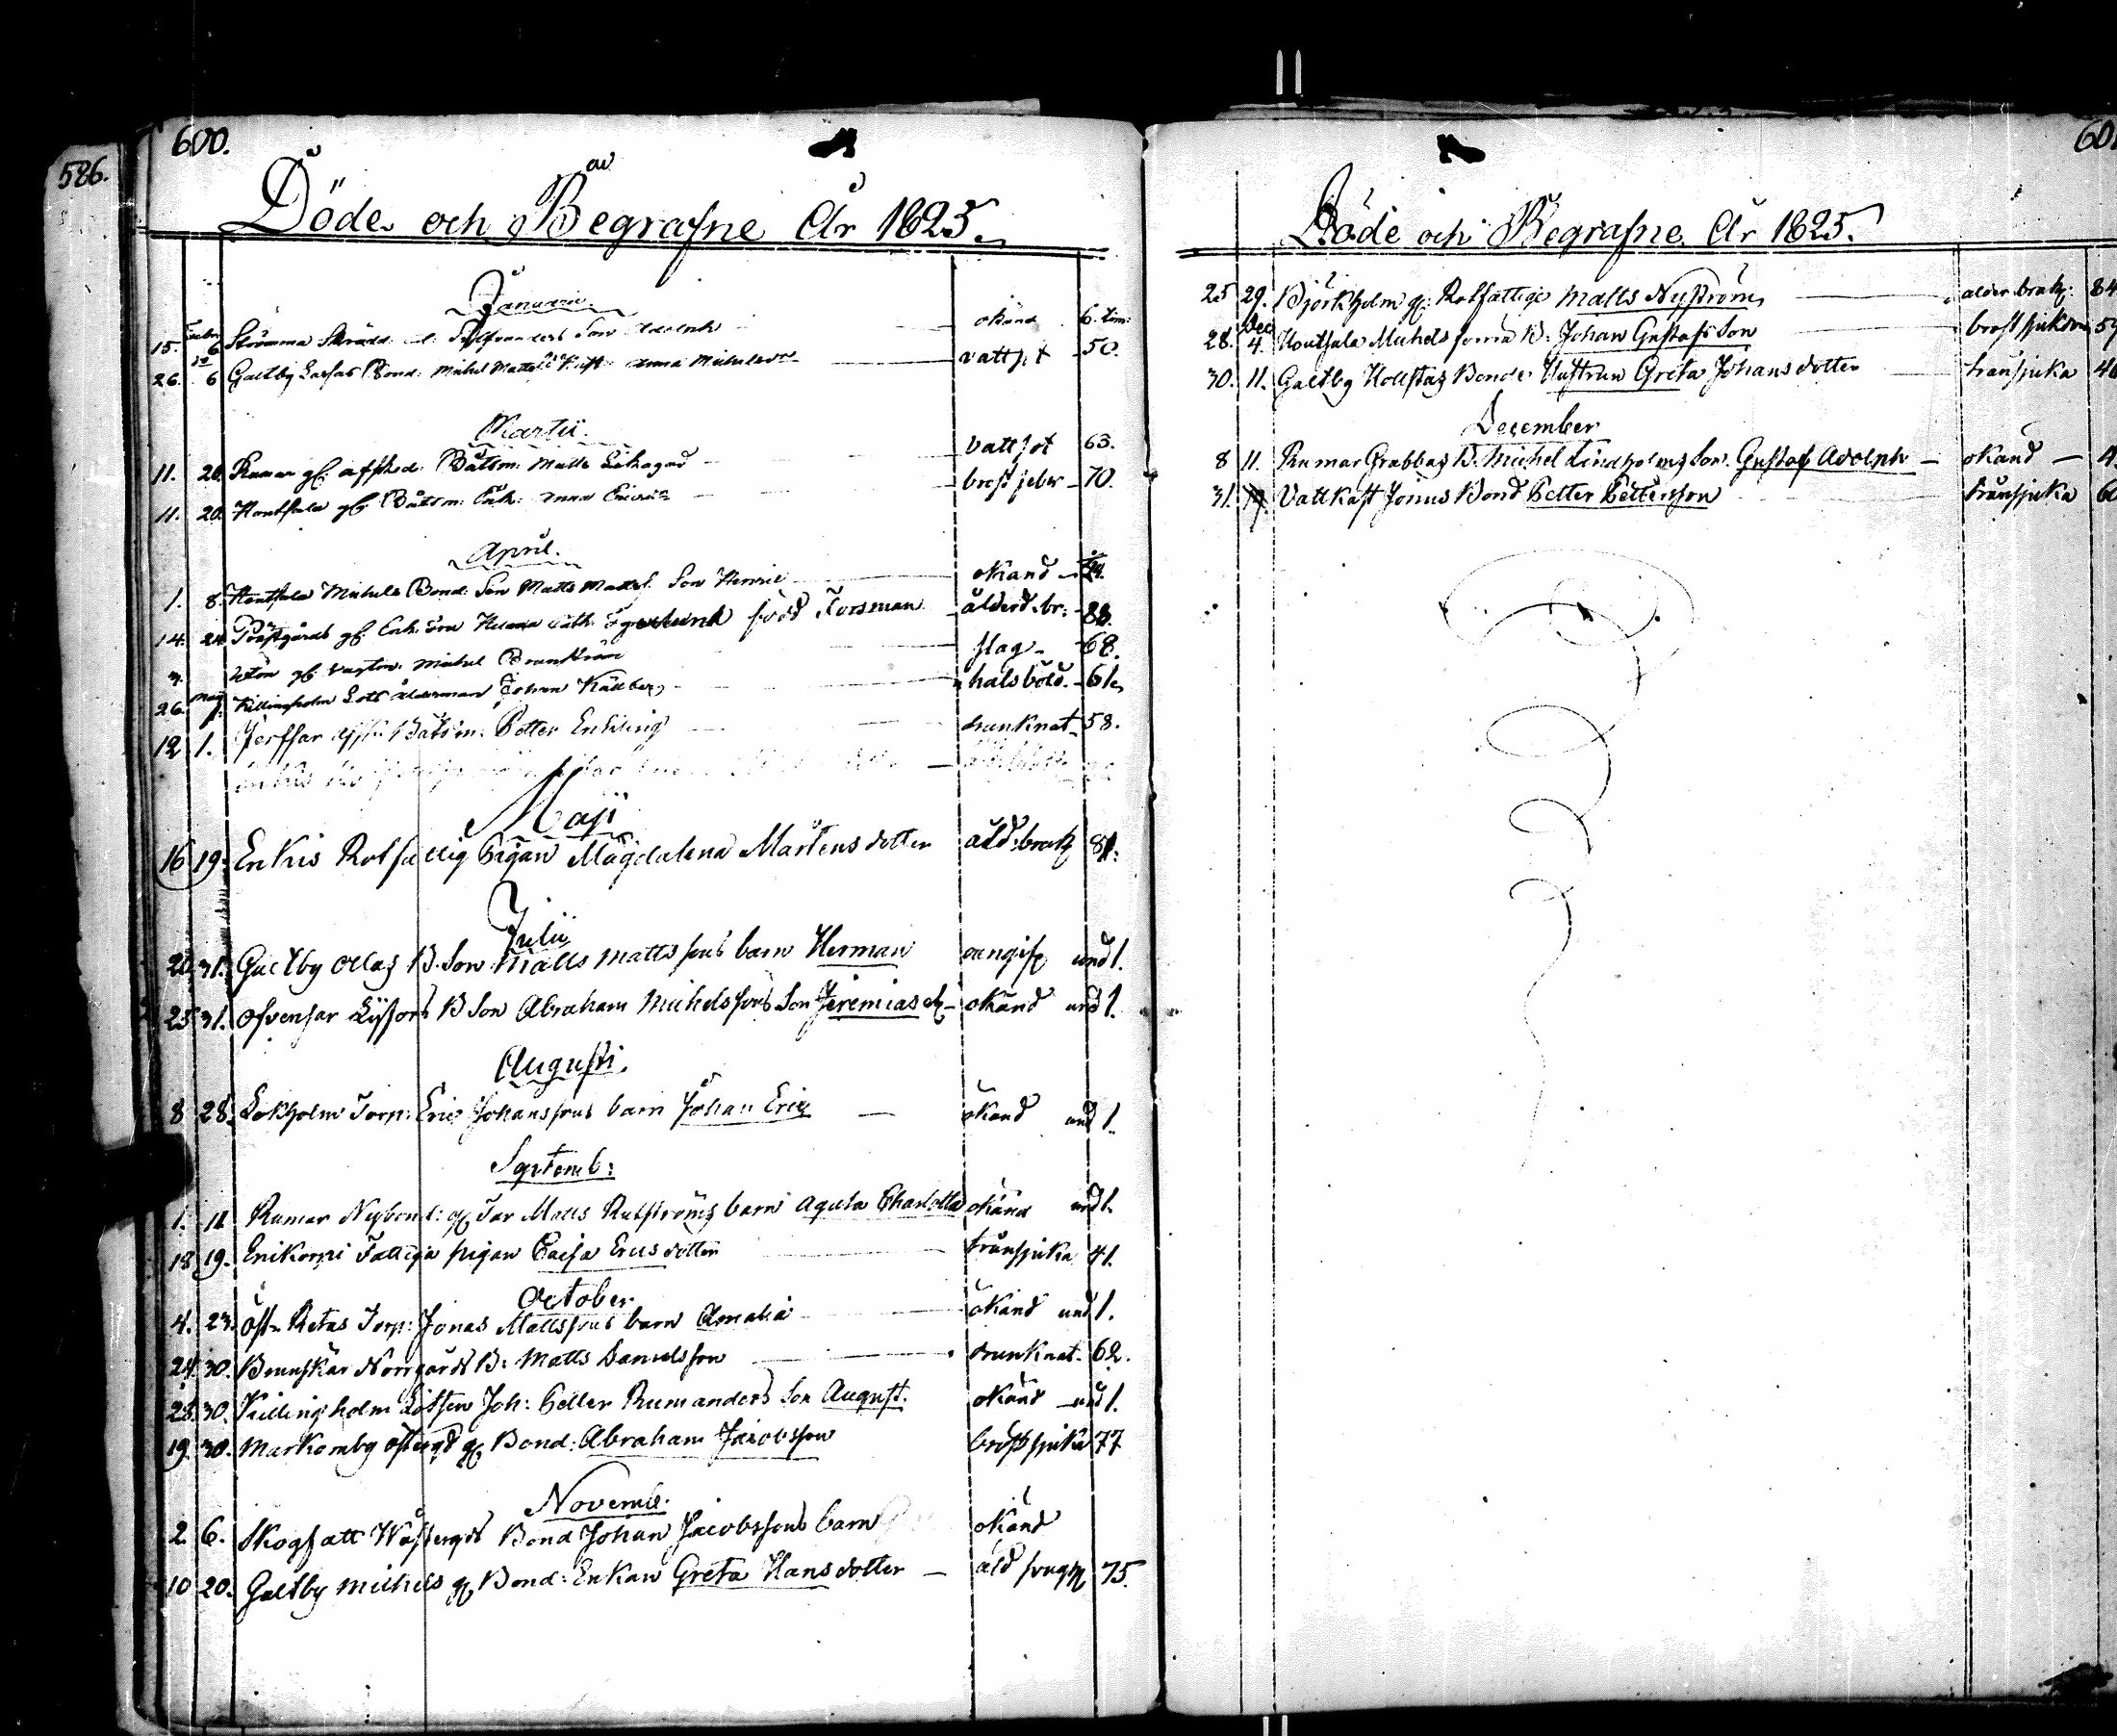 586.
600.
Döde och Begrafne År 1825.
Januarii.
15. Febr. 6 Strömma Skrädd. Son Adolph okänd 6. tim:
26. 6 Galtby Larsas Bond: Michel Matts: Hust: Anna Michelsdr vattsot 50.
Martii.
11. 20. Rumar gl: afsked: Båtsm: Matts vattsot 63.
11. 20. Hontsala gl Båtsm: Enk: Anna bröst feber 70.
April.
1. 8. Hontsala Michels Bond: Son Matts Matts: Son Henric okänd
14. 24. Prästgårds gl: Enk: Fru Helena Cath: född Forsman ålderd. br: 88.
gl Michel slag 68.
26. Maj 1. Killingholm Lots ålderman Johan halsböld. 61
12 1. Båtsm: Petter Enkling drunknat 58.
Maji
16 19. Enkis Rotfattig Pigan Magdalena Mårtensdotter åld:brak 81.
Julii
20 31. Galtby Ollas B. Son Matts Mattssons barn Herman oangif und 1.
25 31. Ofvensar B Son Abraham Michelssons Son Jeremias okänd und 1.
Augusti.
8 28. Lökholm Torp: Eric Johanssons barn Johan Eric okänd und 1.
Septemb:
1. 11 Rumar Nybond: Matts Rutströms barn Agata Charlotta okänd und 1.
18 19. Enikorpi Fattiga pigan Caisa Ericsdotter trånsjuka 41.
October
4. 23. Retas Torp: Jonas Mattssons barn Amalia okänd und 1.
24. 30. Brunskär Norrgårds B: Matts Danielsson drunknat. 62.
28. 30. Killingholm Lotsen Joh: Petter Rumanders Son August. okänd und 1.
19. 30. Markomby östergd gl Bond: Abraham Jacobsson bröstsjuka 77
Novemb.
2. 6. Skogsatt Wästergds Bond Johan Jacobssons barn okänd
10 20. Galtby Michels gl Bond: Enkan Greta Hansdotter åld 75.
601
Döde och Begrafne År 1825.
25 29. Björkholm gl: Rotfattige Matts Nyström ålder brak: 84
28. Dec 4. Hontsala Michels B. Johan Gustafs Son bröst sjukdom
30. 11. Galtby Bonde Hustrun Greta Johansdotter trånsjuka
December
8 11. Rumar Grabbas B. Michel Lindholms Son. Gustaf Adolph okänd 4
31. Vattkast Jönus Bond Petter Pettersson trånsjuka